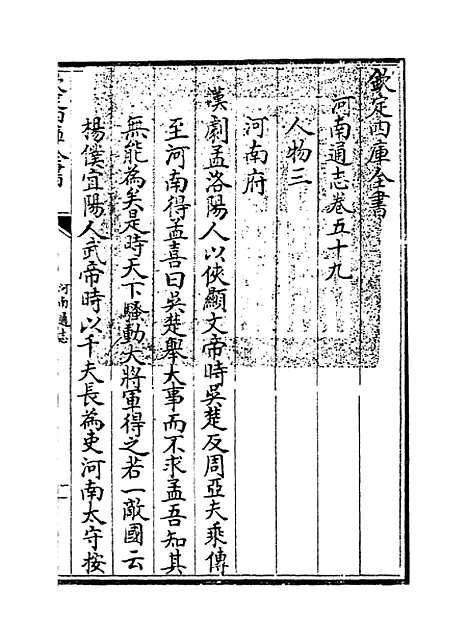 欽定四庫全書
河南通志卷五十九
人物三
河南府
漢劇孟洛陽人以俠顯文帝時吳楚反周亞夫乘傳
至河南得孟喜曰吳楚舉大事而不求孟吾知其
無能為矣是時天下騷動大將軍得之若一敵國云
楊僕宜陽人武帝時以千夫長為吏河南太守按
河南通志